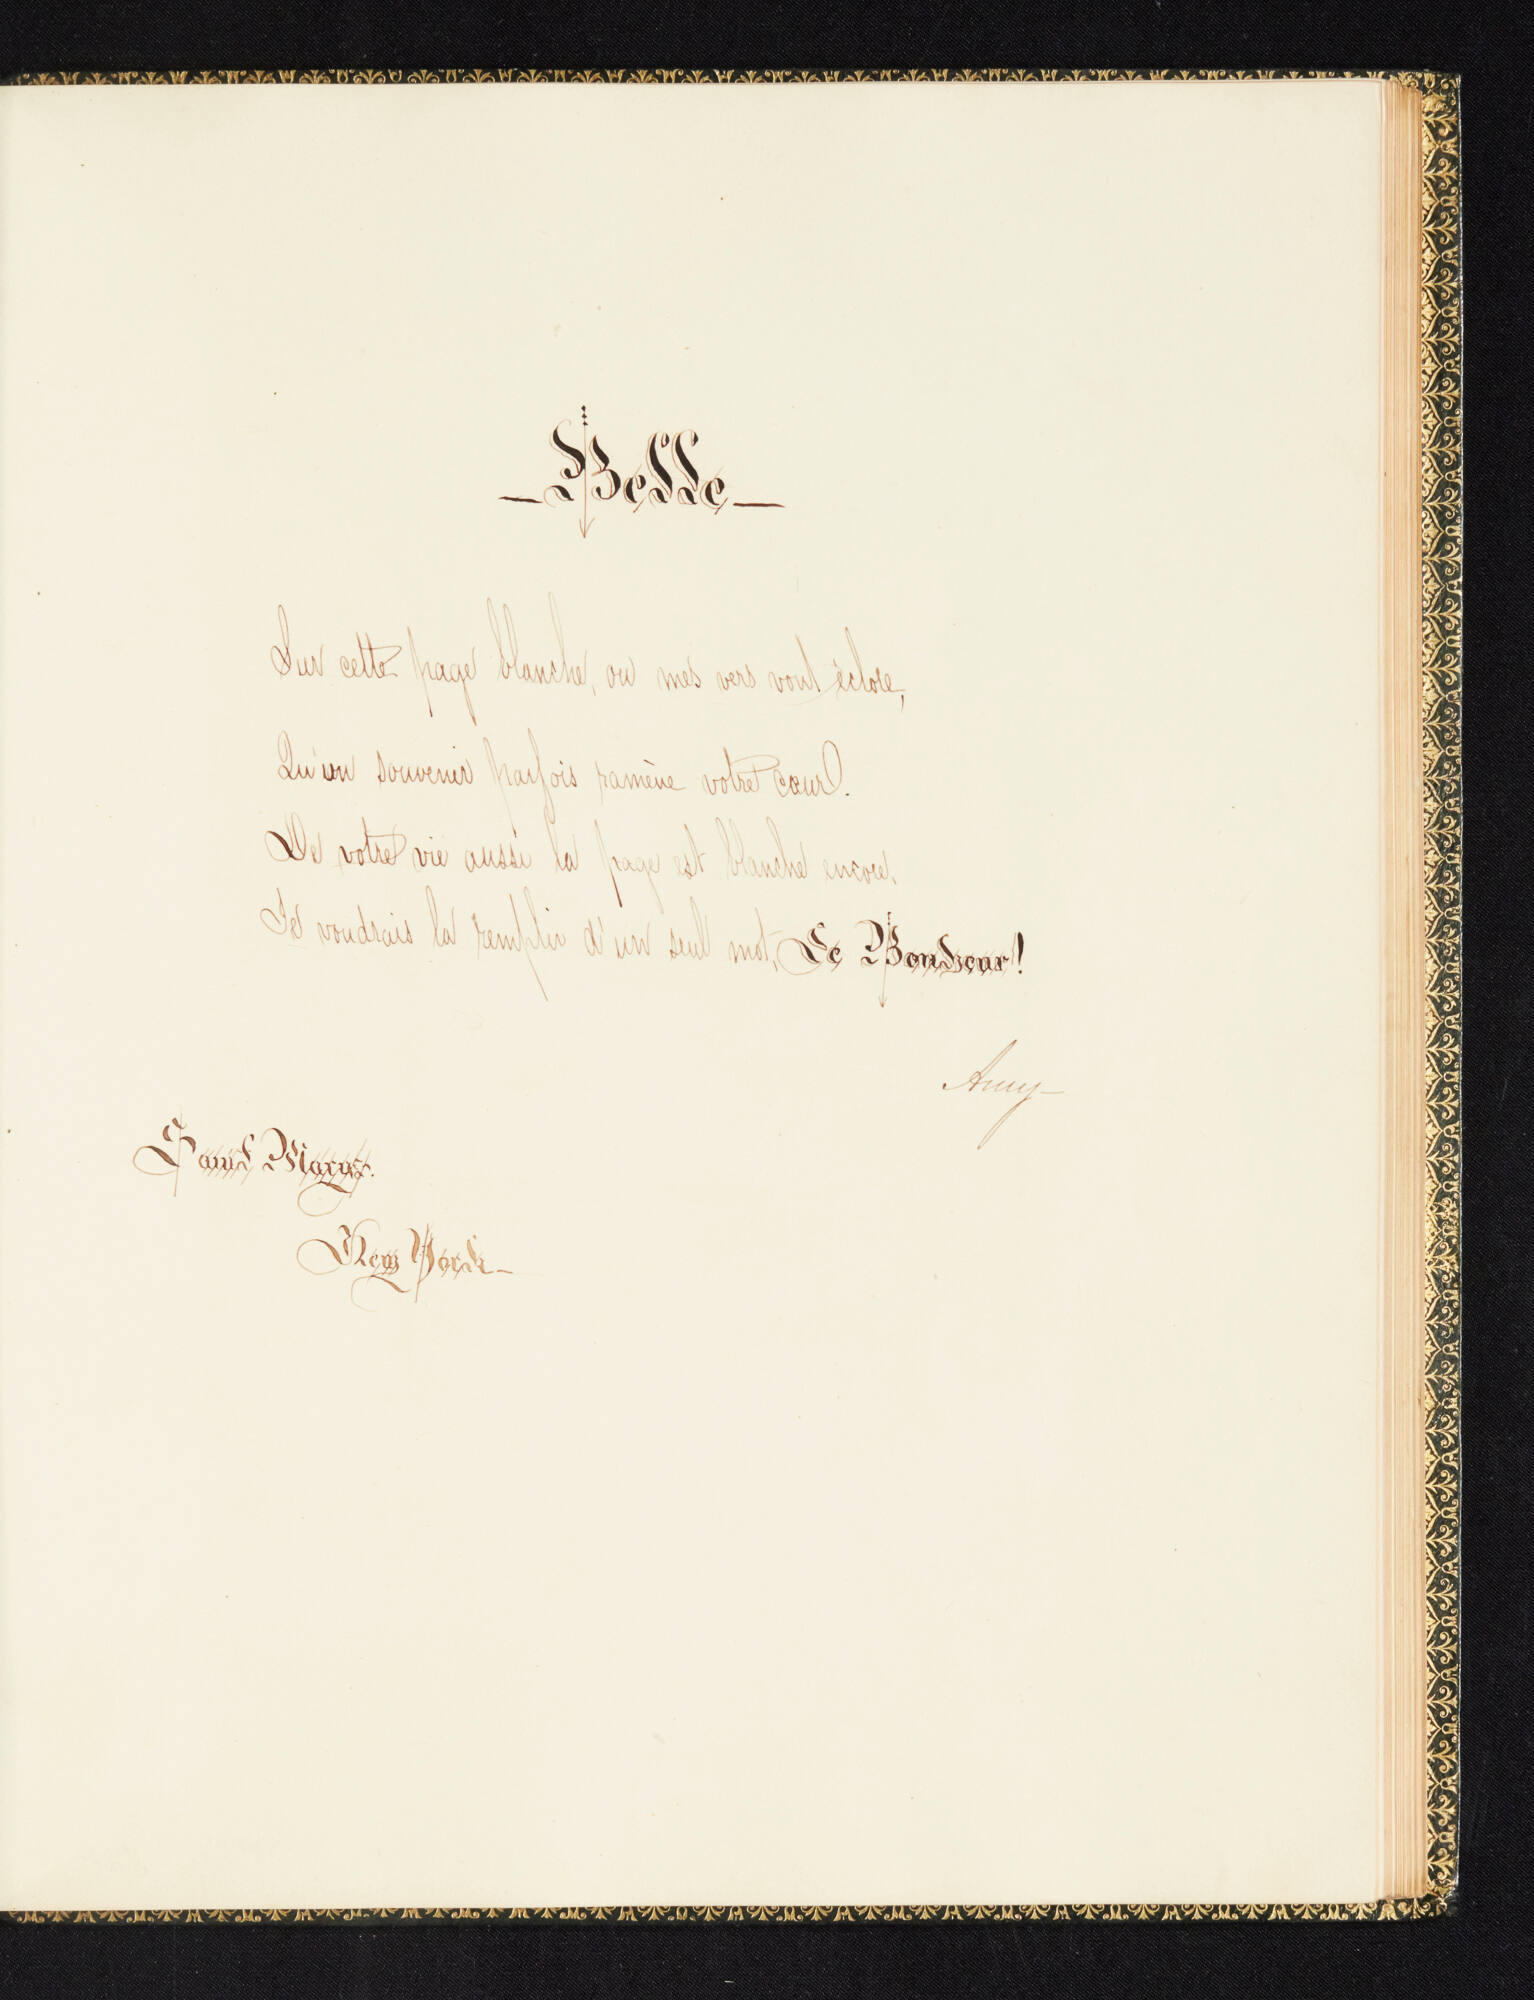 — Belle —
Sur cette page blanche, ou mes vers vont éclore,
Qu'un souvenir parfois ramène votre cœur.
De votre vie aussi la page est blanche encore.
Je voudrais la remplir d'un seul mot, Le Bonheur!
Amy—
Saint Marys.
New York—